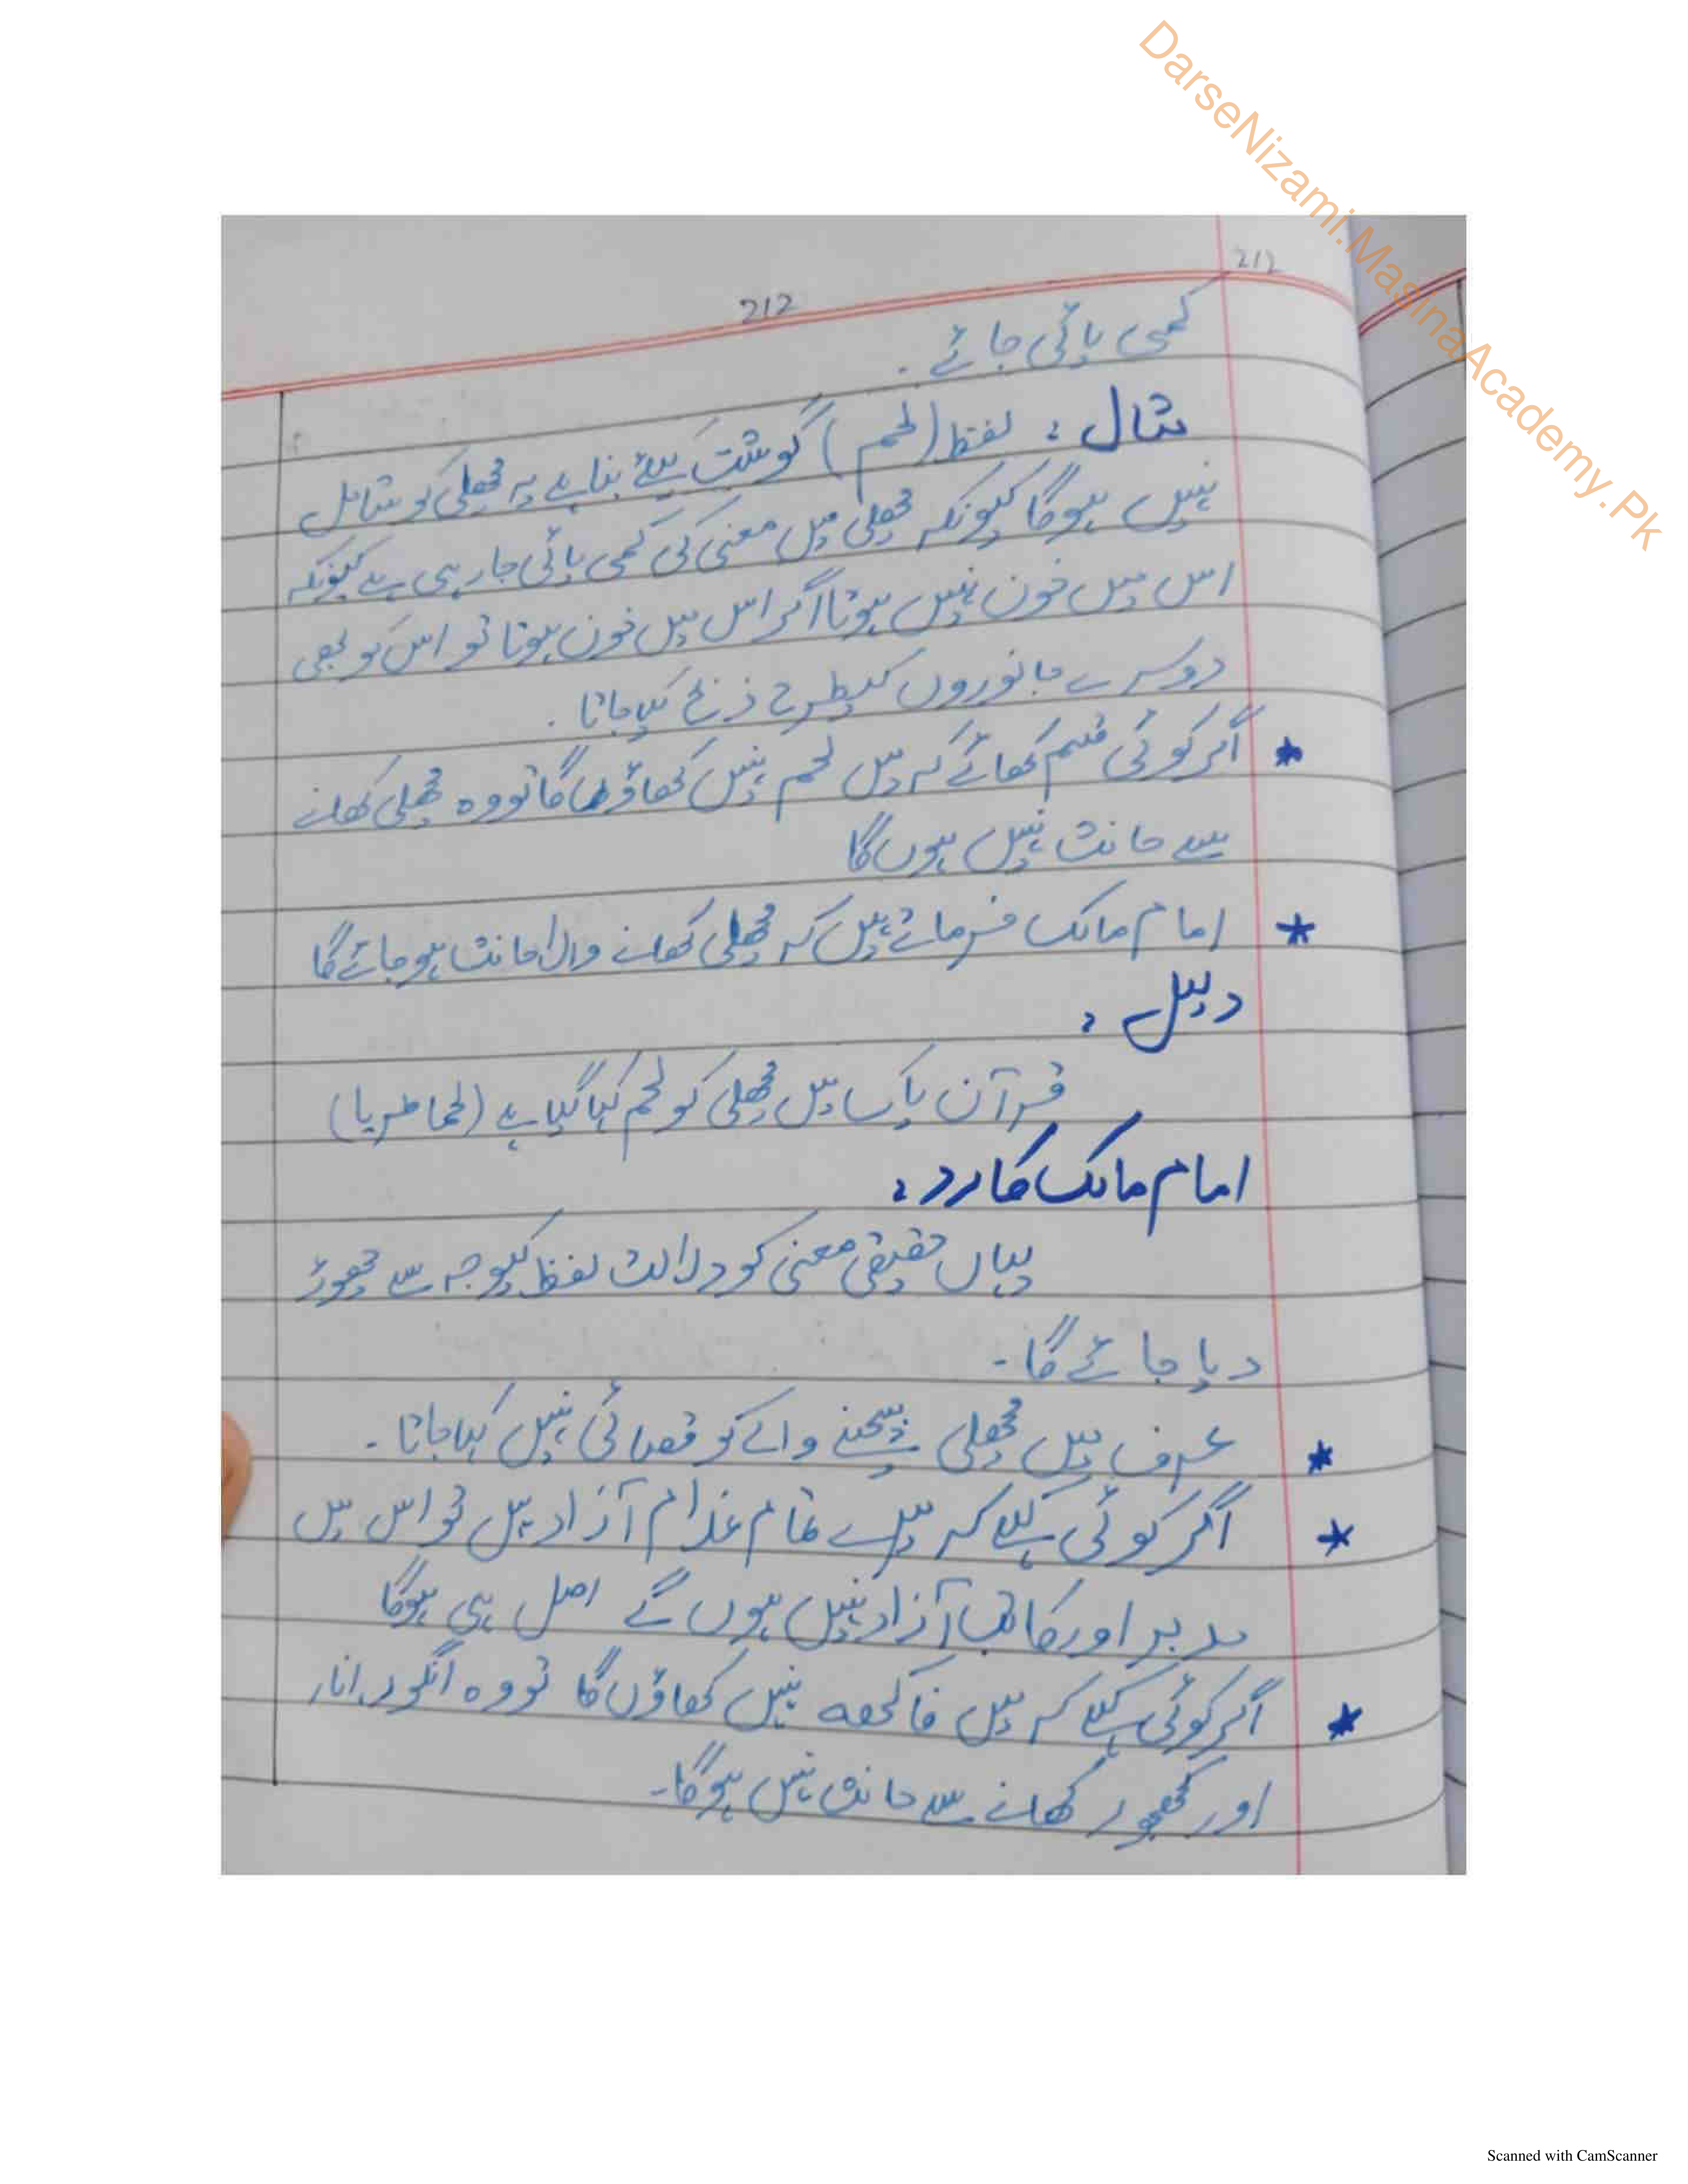 DarseNizami.MasjnaAcademy.Pk
212
212
کمی پائی جائے ۔
مثال : لفظ (لحم) گوشت کیلئے بنا ہے یہ مچھلی کو شامل
نہیں ہوگا کیونکہ مچھلی میں معنی کی کمی پائی جا رہی ہے کیونکہ
اس میں خون نہیں ہوتا اگر اس میں خون ہوتا تو اس کو بھی
دوسرے جانوروں کیطرح ذبح کیا جاتا ۔
* اگر کوئی قسم کھائے کہ میں لحم نہیں کھاؤں گا تو وہ مچھلی کھانے
سے حانث نہیں ہوں گا
* امام مالک فرماتے ہیں کہ مچھلی کھانے والا حانث ہو جائے گا
دلیل :
قرآن پاک میں مچھلی کو لحم کہا گیا ہے (لحما طریا)
امام مالک کا رد :
یہاں حقیقی معنی کو دلالت لفظ کیوجہ سے چھوڑ
دیا جائے گا ۔
* عرف میں مچھلی بیچنے والے کو قصائی نہیں کہا جاتا ۔
* اگر کوئی کہے کہ میرے تمام غلام آزاد ہیں تو اس میں
مدبر اور مکاتب آزاد نہیں ہوں گے اصل ہی ہوگا
* اگر کوئی کہے کہ میں فاکھہ نہیں کھاؤں گا تو وہ انگور، انار
اور کھجور کھانے سے حانث نہیں ہوگا ۔
Scanned with CamScanner